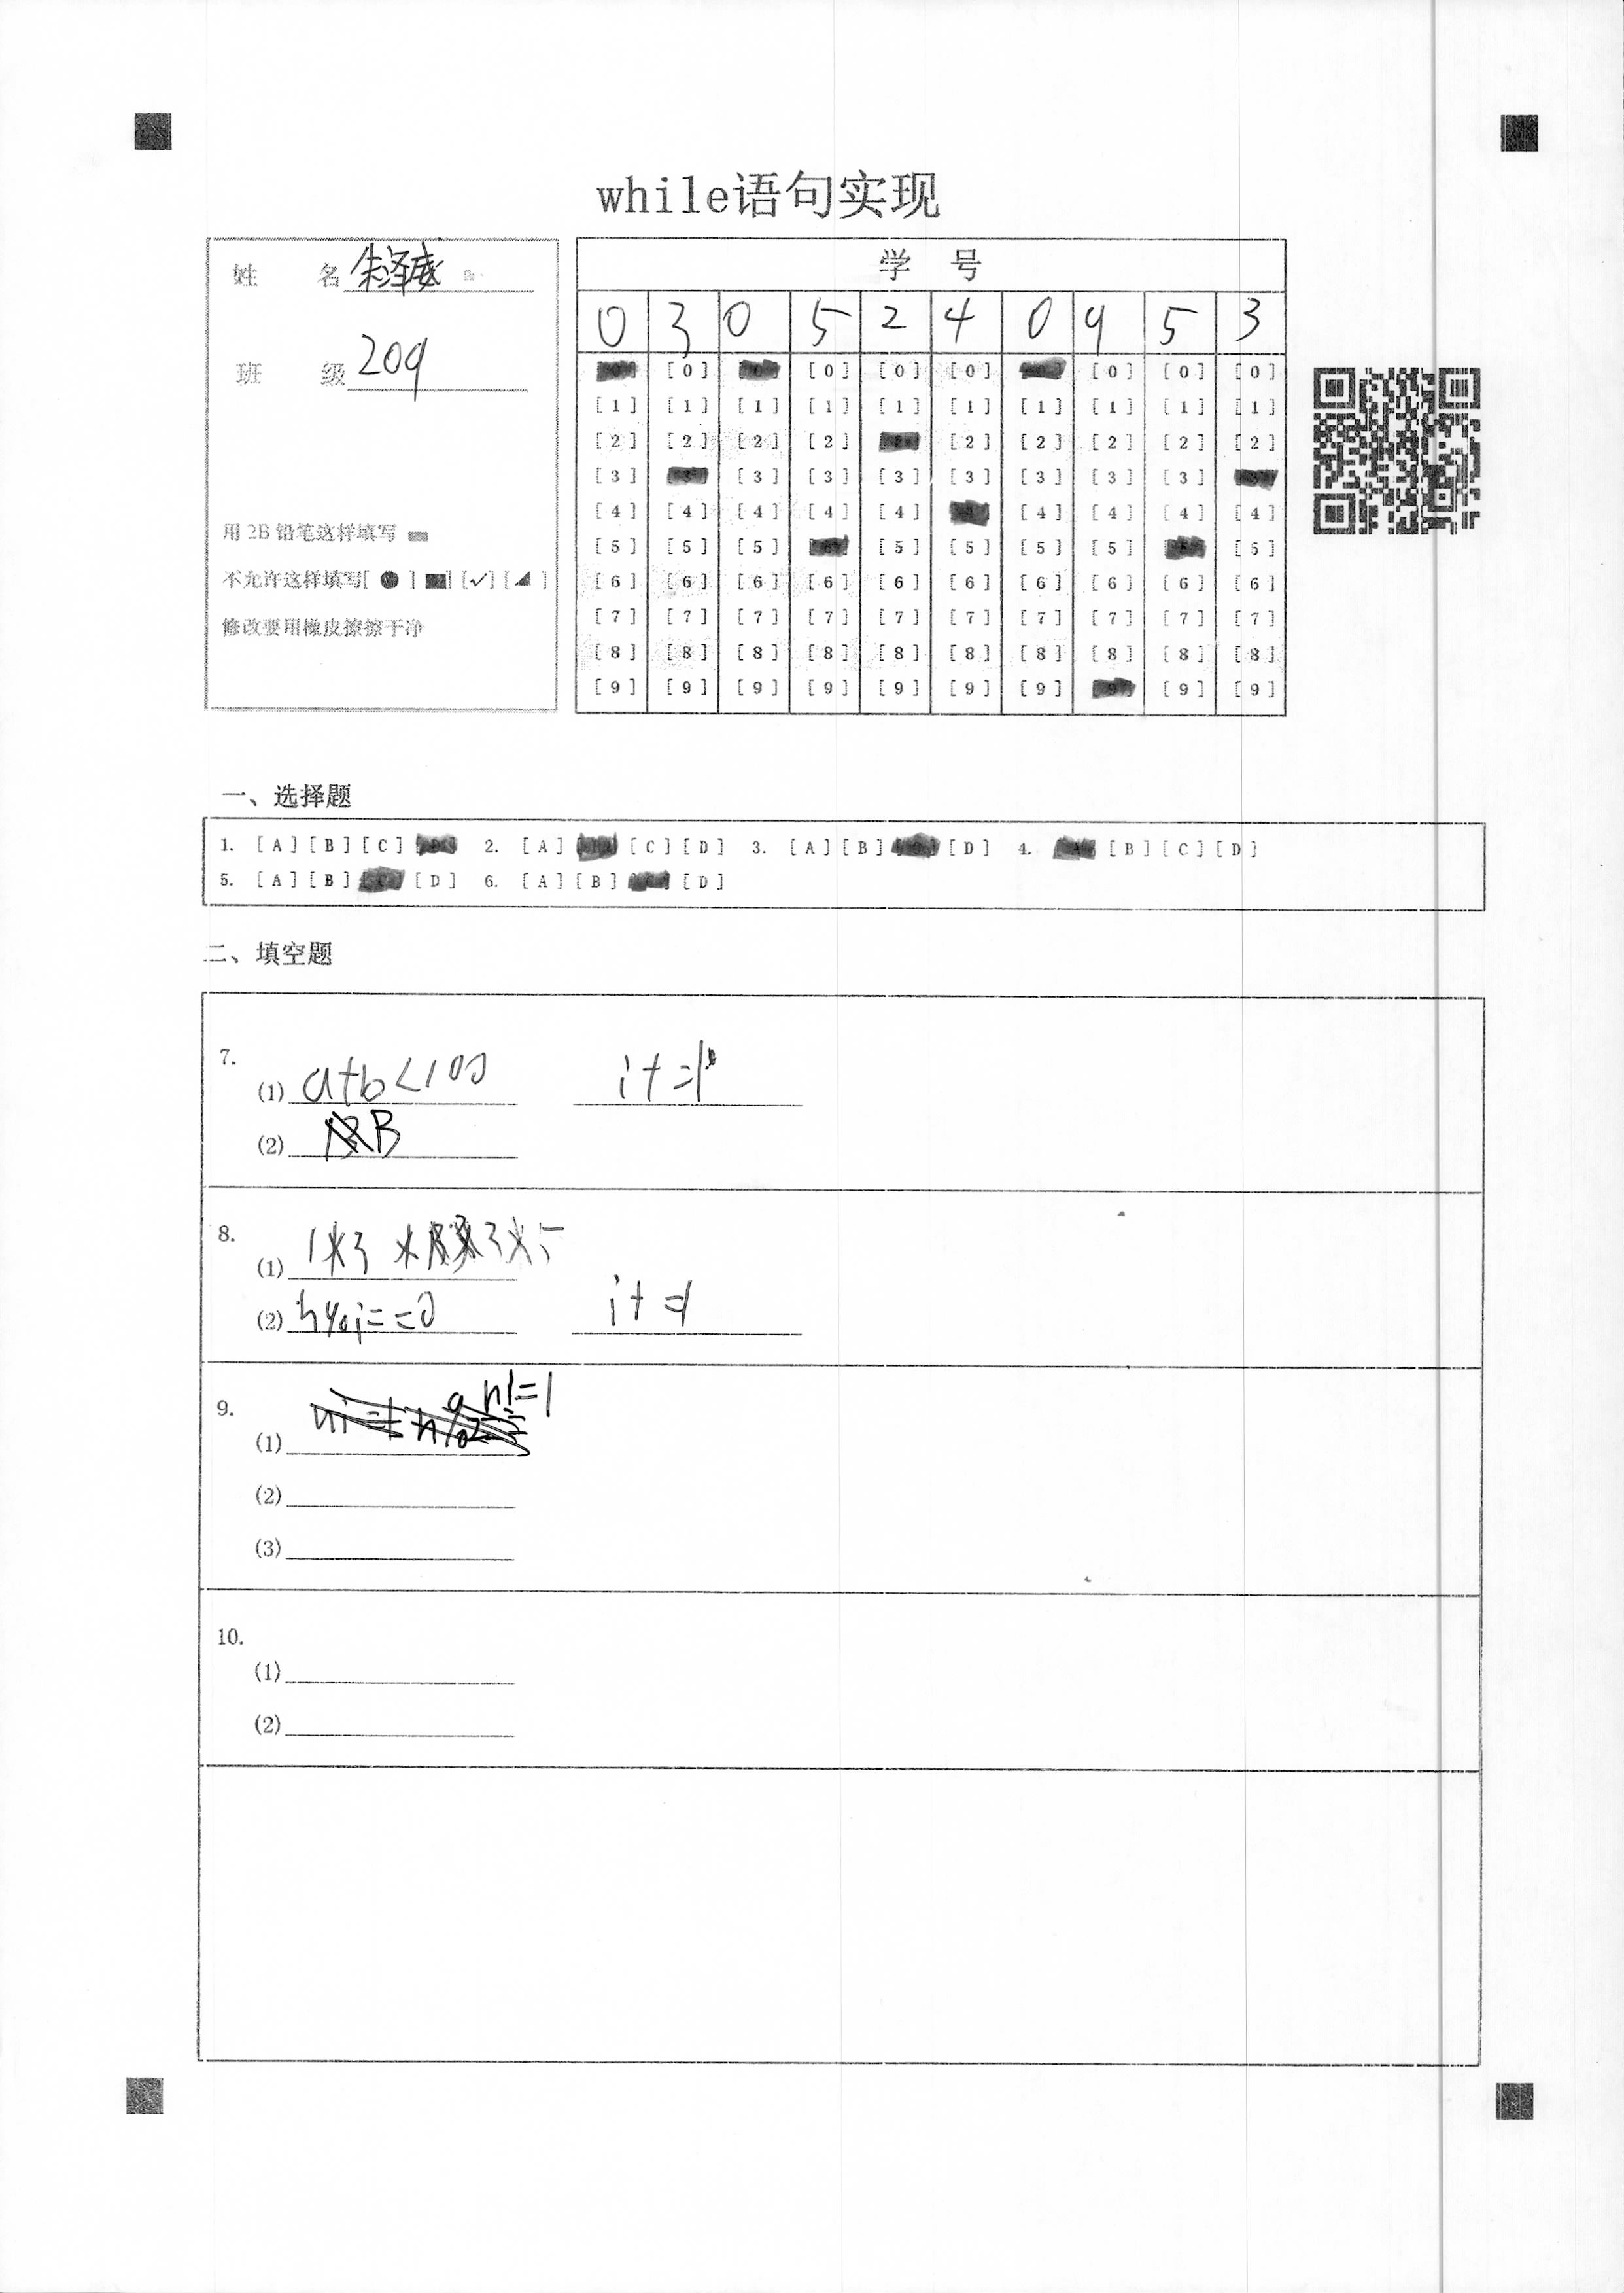 while语句实现
姓 名 朱泽威
班 级 209
用 2B 铅笔这样填写
不允许这样填写[ ● ] [■] [✓] [◢ ]
修改要用橡皮擦擦干净
学 号
0 3 0 5 2 4 0 9 5 3
[0] [0] [0] [0] [0] [0] [0]
[1] [1] [1] [1] [1] [1] [1] [1] [1] [1]
[2] [2] [2] [2] [2] [2] [2] [2] [2]
[3] [3] [3] [3] [3] [3] [3] [3]
[4] [4] [4] [4] [4] [4] [4] [4] [4]
[5] [5] [5] [5] [5] [5] [5] [5]
[6] [6] [6] [6] [6] [6] [6] [6] [6] [6]
[7] [7] [7] [7] [7] [7] [7] [7] [7] [7]
[8] [8] [8] [8] [8] [8] [8] [8] [8] [8]
[9] [9] [9] [9] [9] [9] [9] [9] [9]
一、选择题
1. [A] [B] [C] 2. [A] [C] [D] 3. [A] [B] [D] 4. [B] [C] [D]
5. [A] [B] [D] 6. [A] [B] [D]
二、填空题
7.
(1) a+b<100 i+=1
(2) B
8.
(1) 1*3 * 3*5
(2) n%i==0 i+=1
9.
(1) n!=1
(2)
(3)
10.
(1)
(2)